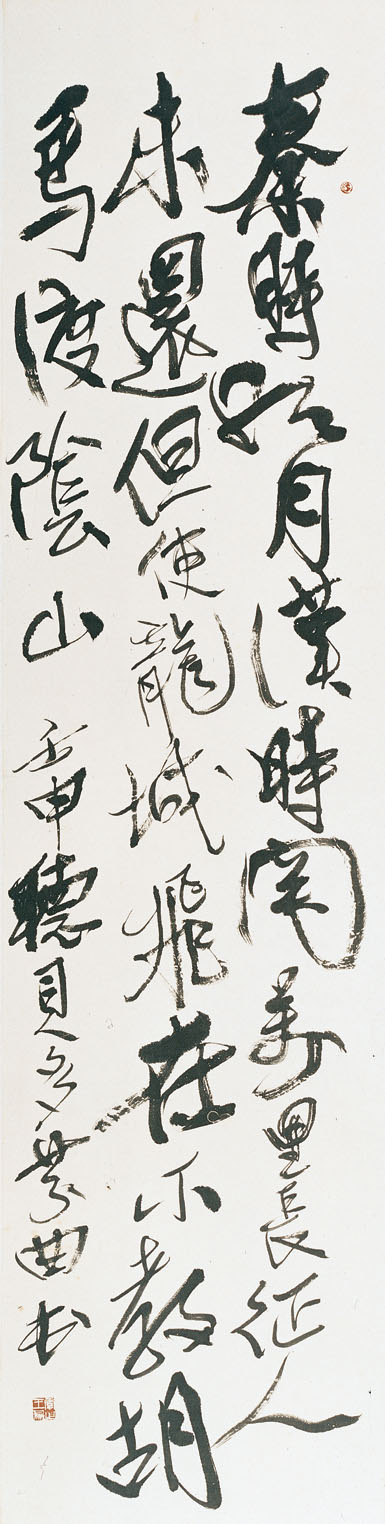 秦時明月漢時關萬里長征人
未還但使龍城飛在不教胡
馬渡陰山 壬申